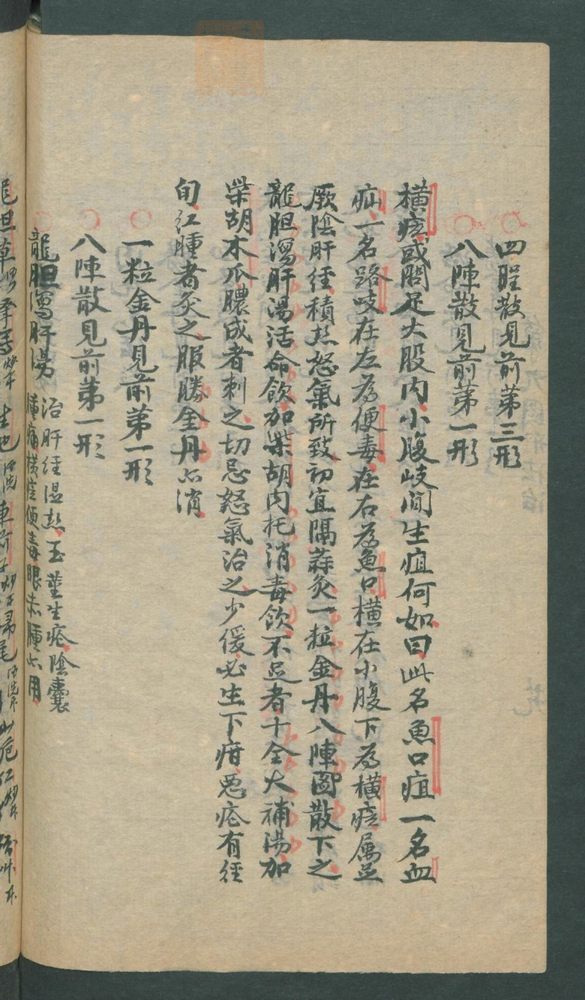 四聖散見前第三形
八陣散見前第一形
橫痃或問足大股内小腹岐间生疽何如曰此名魚口疽一名血
疝一名路岐在左為便毒在右為魚口橫在小腹下為橫痃属足
厥陰肝经積热怒氣所致初宜隔蒜灸一粒金丹八陣圖散下之
龍胆瀉肝湯活命飲加柴胡内托消毒飲不足者十全大補湯加
柴胡木瓜膿成者刺之切忌怒氣治之少缓必生下疳惡疮有经
旬紅腫者灸之服勝金丹亦消
一粒金丹見前第一形
八陣散見前第一形
龍胆瀉肝湯
治肝经湿热玉莖生疮陰囊
腫痛橫痃便毒眼赤腫亦用